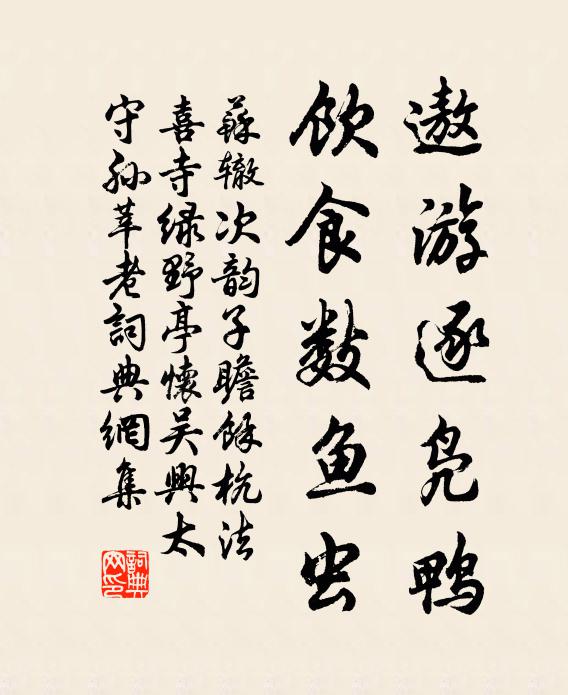 遨游逐凫鸭
饮食数鱼虫
蘇辙次韵子瞻餘杭法
喜寺绿野亭懷吴興太
守孙莘老詞典網集
詞典网印